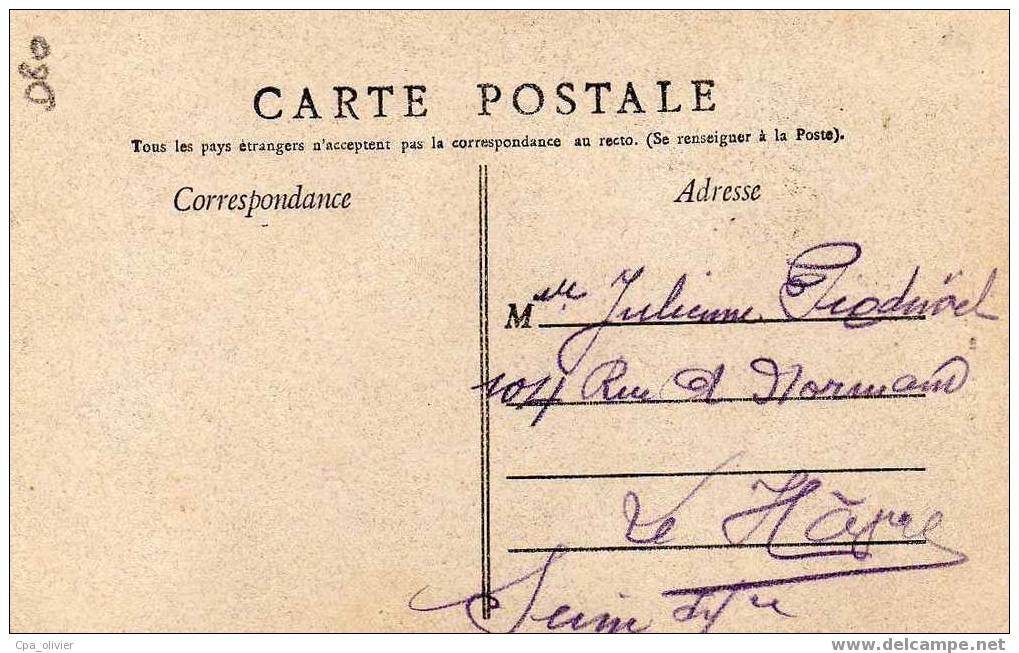 CARTE POSTALE
Tous les pays étrangers n'acceptent pas la correspondance au recto. (Se renseigner à la Poste).
Correspondance
Adresse
Melle Julienne
104 Rue d Normand
Le Hâvre
Seine Infre
Cpa_olivier
www.delcampe.net